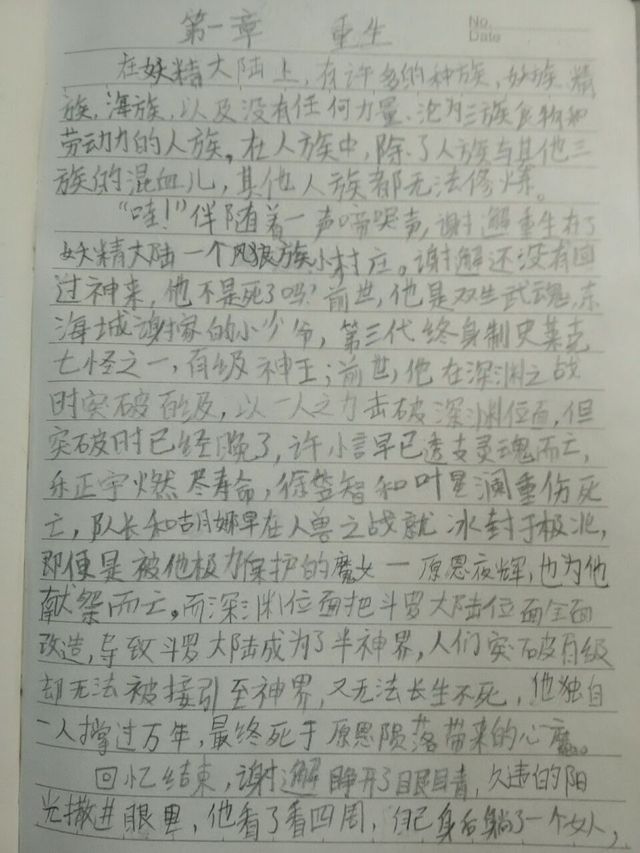 No.
Date
第一章 重生
在妖精大陆上,有许多的种族,妖族,精
族,海族,以及没有任何力量,沦为三族食物和
劳动力的人族。在人族中,除了人族与其他三
族的混血儿,其他人族都无法修炼。
“哇!”伴随着一声啼哭声,谢解重生在了
妖精大陆一个风狼族小村庄。谢解还没有回
过神来,他不是死了吗?前世,他是双生武魂,东
海城谢家的小少爷,第三代终身制史莱克
七怪之一,百级神王;前世,他在深渊之战
时突破百级,以一人之力击破深渊位面,但
突破时已经晚了,许小言早已透支灵魂而亡,
乐正宇燃尽寿命,徐笠智和叶星澜重伤死
亡,队长和古月娜早在人兽之战就冰封于极北,
即便是被他极力保护的魔女一原恩夜辉,也为他
献祭而亡。而深渊位面把斗罗大陆位面全面
改造,导致斗罗大陆成为了半神界,人们突破百级
却无法被接引至神界,又无法长生不死,他独自
一人撑过万年,最终死于原恩陨落带来的心魔。
回忆结束,谢解睁开了眼睛,久违的阳
光撒进眼里,他看了看四周,自己身后躺了一个女人,